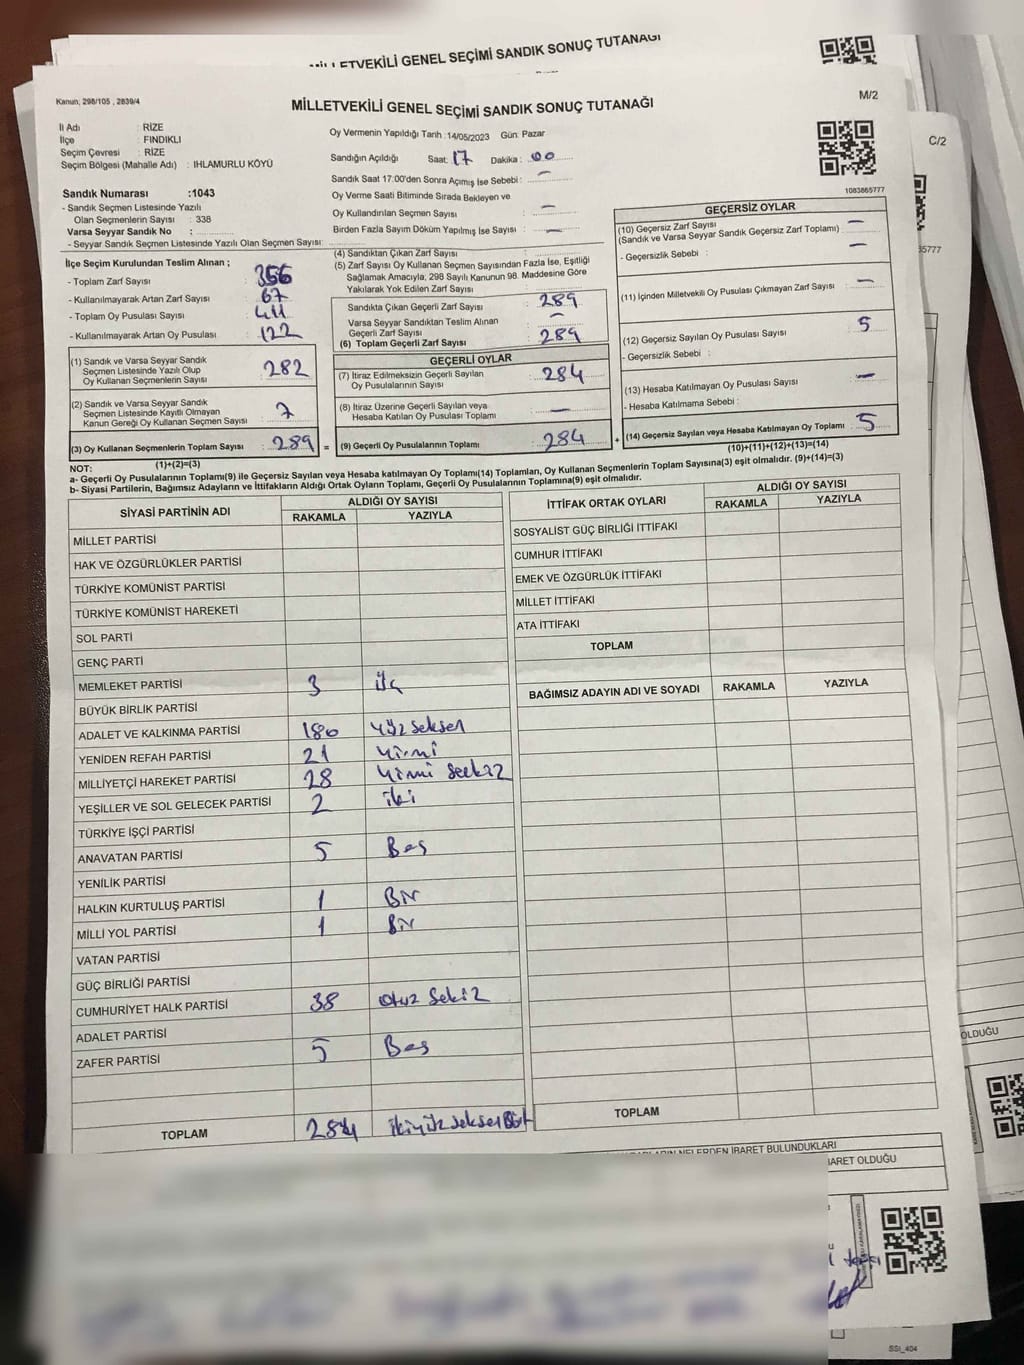 MİLLETVEKİLİ GENEL SEÇİMİ SANDIK SONUÇ TUTANAĞI
Kanun; 298/105 , 2839/4
MİLLETVEKİLİ GENEL SEÇİMİ SANDIK SONUÇ TUTANAĞI
M/2
C/2
İl Adı : RİZE
İlçe : FINDIKLI
Seçim Çevresi : RİZE
Seçim Bölgesi (Mahalle Adı) : IHLAMURLU KÖYÜ
Sandık Numarası :1043
- Sandık Seçmen Listesinde Yazılı
Olan Seçmenlerin Sayısı : 338
Varsa Seyyar Sandık No :
- Seyyar Sandık Seçmen Listesinde Yazılı Olan Seçmen Sayısı:
Oy Vermenin Yapıldığı Tarih :14/05/2023 Gün: Pazar
Sandığın Açıldığı Saat: 17 Dakika : 00
Sandık Saat 17:00'den Sonra Açımış İse Sebebi : —
Oy Verme Saati Bitiminde Sırada Bekleyen ve
Oy Kullandırılan Seçmen Sayısı : —
Birden Fazla Sayım Döküm Yapılmış İse Sayısı : —
1083865777
35777
İlçe Seçim Kurulundan Teslim Alınan ;
- Toplam Zarf Sayısı : 356
- Kullanılmayarak Artan Zarf Sayısı : 67
- Toplam Oy Pusulası Sayısı : 411
- Kullanılmayarak Artan Oy Pusulası : 122
(1) Sandık ve Varsa Seyyar Sandık
Seçmen Listesinde Yazılı Olup
Oy Kullanan Seçmenlerin Sayısı : 282
(2) Sandık ve Varsa Seyyar Sandık
Seçmen Listesinde Kayıtlı Olmayan
Kanun Gereği Oy Kullanan Seçmen Sayısı : 7
(3) Oy Kullanan Seçmenlerin Toplam Sayısı : 289 =
(1)+(2)=(3)
(4) Sandıktan Çıkan Zarf Sayısı :
(5) Zarf Sayısı Oy Kullanan Seçmen Sayısından Fazla İse, Eşitliği
Sağlamak Amacıyla, 298 Sayılı Kanunun 98. Maddesine Göre
Yakılarak Yok Edilen Zarf Sayısı :
Sandıkta Çıkan Geçerli Zarf Sayısı : 289
Varsa Seyyar Sandıktan Teslim Alınan
Geçerli Zarf Sayısı : —
(6) Toplam Geçerli Zarf Sayısı : 289
GEÇERLİ OYLAR
(7) İtiraz Edilmeksizin Geçerli Sayılan
Oy Pusulalarının Sayısı : 284
(8) İtiraz Üzerine Geçerli Sayılan veya
Hesaba Katılan Oy Pusulası Toplamı : —
(9) Geçerli Oy Pusulalarının Toplamı : 284 +
GEÇERSİZ OYLAR
(10) Geçersiz Zarf Sayısı
(Sandık ve Varsa Seyyar Sandık Geçersiz Zarf Toplamı) : —
- Geçersizlik Sebebi : —
(11) İçinden Milletvekili Oy Pusulası Çıkmayan Zarf Sayısı : —
(12) Geçersiz Sayılan Oy Pusulası Sayısı : 5
- Geçersizlik Sebebi :
(13) Hesaba Katılmayan Oy Pusulası Sayısı : —
- Hesaba Katılmama Sebebi :
(14) Geçersiz Sayılan veya Hesaba Katılmayan Oy Toplamı : 5
(10)+(11)+(12)+(13)=(14)
NOT:
a- Geçerli Oy Pusulalarının Toplamı(9) ile Geçersiz Sayılan veya Hesaba katılmayan Oy Toplamı(14) Toplamları, Oy Kullanan Seçmenlerin Toplam Sayısına(3) eşit olmalıdır. (9)+(14)=(3)
b- Siyasi Partilerin, Bağımsız Adayların ve İttifakların Aldığı Ortak Oyların Toplamı, Geçerli Oy Pusulalarının Toplamına(9) eşit olmalıdır.
SİYASİ PARTİNİN ADI ALDIĞI OY SAYISI
RAKAMLA YAZIYLA
MİLLET PARTİSİ
HAK VE ÖZGÜRLÜKLER PARTİSİ
TÜRKİYE KOMÜNİST PARTİSİ
TÜRKİYE KOMÜNİST HAREKETİ
SOL PARTİ
GENÇ PARTİ
MEMLEKET PARTİSİ 3 üç
BÜYÜK BİRLİK PARTİSİ
ADALET VE KALKINMA PARTİSİ 180 yüz seksen
YENİDEN REFAH PARTİSİ 21 yirmi
MİLLİYETÇİ HAREKET PARTİSİ 28 yirmi sekiz
YEŞİLLER VE SOL GELECEK PARTİSİ 2 iki
TÜRKİYE İŞÇİ PARTİSİ
ANAVATAN PARTİSİ 5 Beş
YENİLİK PARTİSİ
HALKIN KURTULUŞ PARTİSİ 1 Bir
MİLLİ YOL PARTİSİ 1 Bir
VATAN PARTİSİ
GÜÇ BİRLİĞİ PARTİSİ
CUMHURİYET HALK PARTİSİ 38 otuz sekiz
ADALET PARTİSİ
ZAFER PARTİSİ 5 Beş
TOPLAM 284 ikiyüz seksen Dört
İTTİFAK ORTAK OYLARI ALDIĞI OY SAYISI
RAKAMLA YAZIYLA
SOSYALİST GÜÇ BİRLİĞİ İTTİFAKI
CUMHUR İTTİFAKI
EMEK VE ÖZGÜRLÜK İTTİFAKI
MİLLET İTTİFAKI
ATA İTTİFAKI
TOPLAM
BAĞIMSIZ ADAYIN ADI VE SOYADI RAKAMLA YAZIYLA
TOPLAM
NELERDEN İBARET BULUNDUKLARI
İBARET OLDUĞU
OLDUĞU
SSİ_404